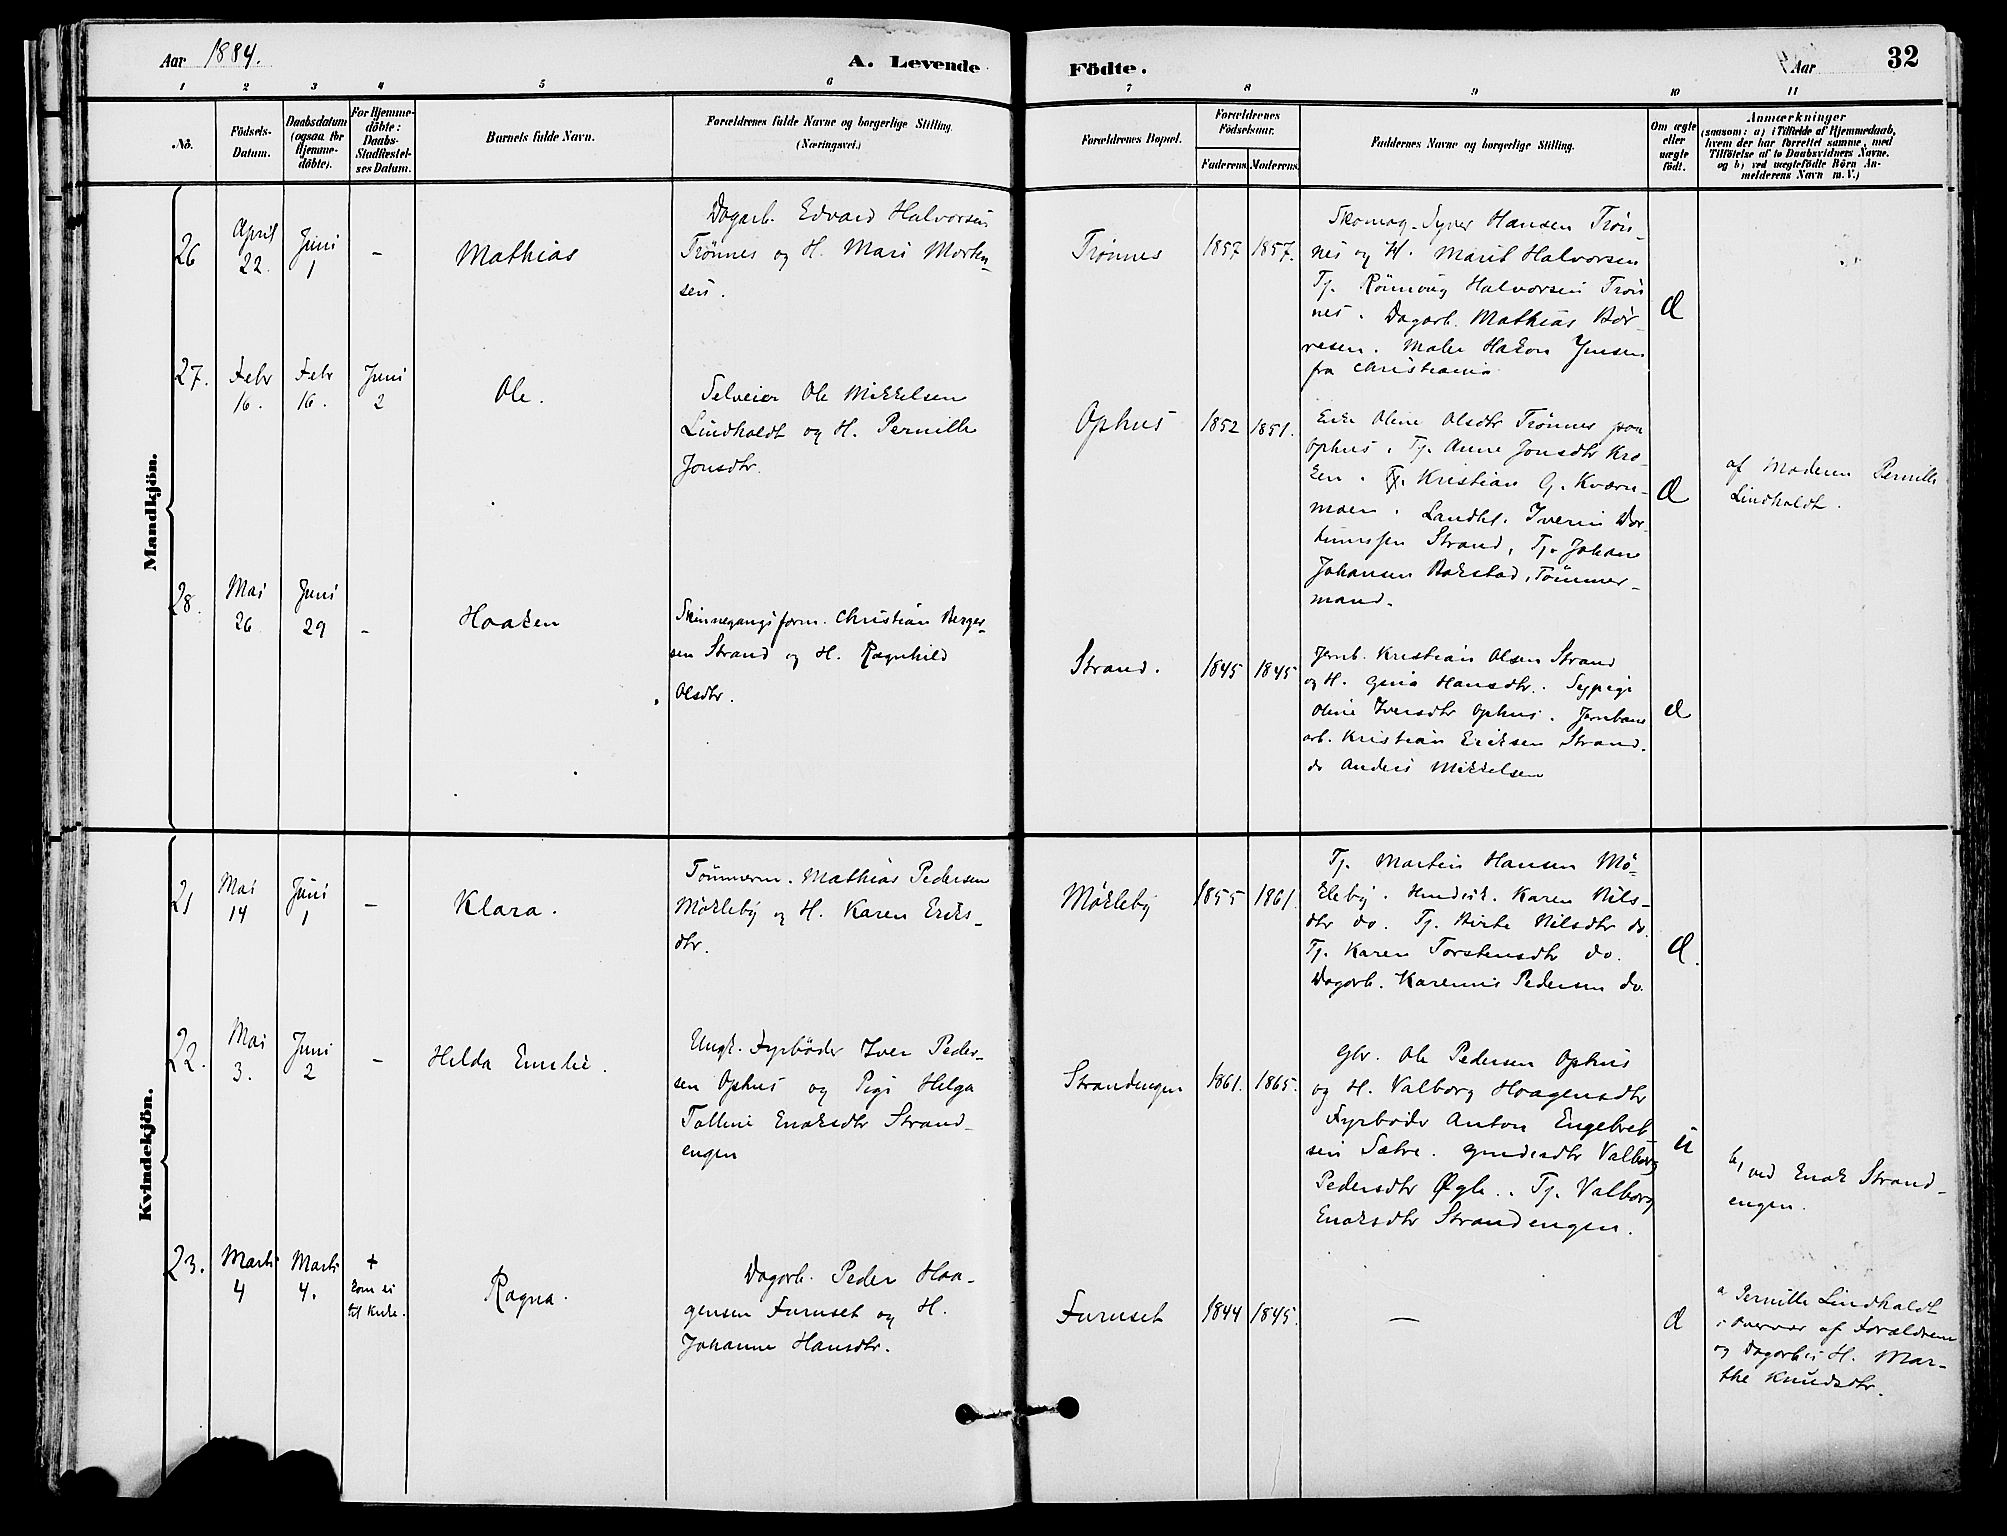 Aar 1884.
A. Levende
Födte.
Aar
32
1 2 3 4 5 6 7 8 9 10 11
No.
Födsels-
Datum.
Daabsdatum
(ogsaa for
Hjemme-
döbte).
For Hjemme-
döbte:
Daabs-
Stadfæstel-
ses Datum.
Barnets fulde Navn.
Forældrenes fulde Navne og borgerlige Stilling.
(Næringsvei.)
Forældrenes Bopæl.
Forældrenes
Födselsaar.
Faderens. Moderens.
Faddernes Navne og borgerlige Stilling.
Om ægte
eller
uægte
födt.
Anmærkninger
(saasom: a) i Tilfælde af Hjemmedaab,
hvem der har forrettet samme, med
Tilföielse af to Daabsvidners Navne.
og b) ved uægtefödte Börn An-
melderens Navn m. V.)
Mandkjön.
26
April
22.
Juni
1
-
Mathias
Dagarb. Edvard Halvorsen
Trönnes og H. Mari Morten-
sen.
Trönnes
1857
1857.
Skomag. Syver Hansen Trön-
nes og H. Marit Halvorsen
Tj. Rönnoug Halvorsen Trön
nes. Dagarb. Mathias Bör-
resen. Maler Hakon Jensen
fra Christiania
Æ
27.
Febr
16.
Febr
16.
Juni
2
Ole.
Selveier Ole Mikkelsen
Lindholdt og H. Pernille
Jonsdtr.
Ophus
1852
1851.
Enke Oline Olsdtr Trönnes paa
Ophus. Tj. Anne Jonsdtr Kro-
ken. Tj. Kristian G. Kværn-
moen. Landh. Iverin
Strand, Tj. Johan
Johansen Bakstad, Tömmer-
mand.
Æ
af Moderen Pernille
Lindholdt.
28.
Mai
26
Juni
29
-
Haaken
Skinnegangsform. Christian Berger-
sen Strand og H. Ragnhild
Olsdtr.
Strand.
1845
1845
Jernb. Kristian Olsen Strand
og H. Gina Hansdtr. Sypige
Oline Iversdtr Ophus. Jernbane
arb. Kristian Eriksen Strand.
do Anders Mikkelsen
Æ
Kvindekjön.
21
Mai
14
Juni
1
-
Klara.
Tömmerm. Mathias Pedersen
Mökleby og H. Karen Eriks-
dtr.
Mökleby
1855
1861.
Tj. Martin Hansen Mö-
kleby. Huusk. Karen Nils-
dtr do. Tj. Birte Nilsdtr do.
Tj. Karen Torstensdtr do.
Dagarb. Karenus Pedersen do.
Æ.
22.
Mai
3.
Juni
2
-
Hilda Emilie.
Ungk. Fyrböder Iver Peder-
sen Ophus og Pige Helga
Tolline Enoksdtr Strand-
engen
Strandengen
1861.
1865.
Gbr. Ole Pedersen Ophus
og H. Valborg Haagensdtr
Fyrböder Anton Engebret-
sen Sætre. Gmdsdtr Valborg
Pedersdtr Øgle. Tj. Valborg
Enoksdtr Strandengen.
u
b, ved Enok Strand-
engen.
23.
Marts
4
Marts
4.
+
kom ei
til Kirke.
Ragna.
Dagarb. Peder Haa-
gensen Furuset og H.
Johanne Hansdtr.
Furuset
1844
1845.
-
Æ
a, Pernille Lindholdt
i Overvær af Forældrene
og Dagarb.s H. Mar-
the Knudsdtr.